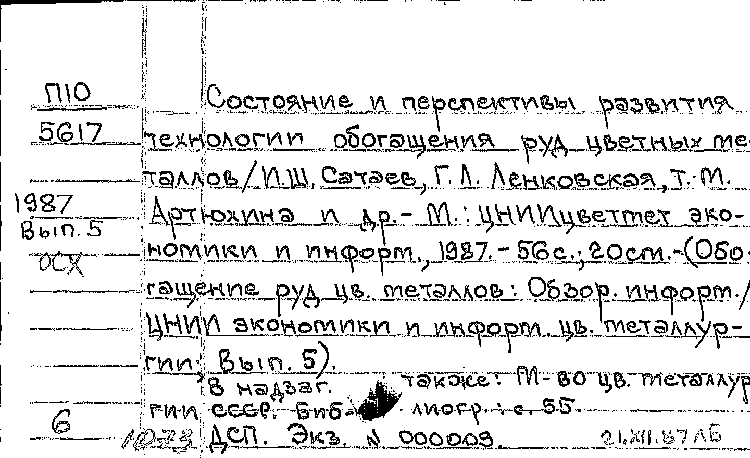 П10
5617
1987
Вып. 5
ОСХ
6
Состояние и перспективы развития
технологии обогащения руд цветных ме-
таллов/И.Ш. Сатаев, Г.Л. Ленковская, Т.М.
Артюхина и др.- М.: ЦНИИцветмет эко-
номики и информ., 1987.- 56с.; 20см.-(Обо-
гащение руд цв. металлов: Обзор. информ./
ЦНИИ экономики и информ. цв. металлур-
гии; Вып. 5).
В надзаг. также: М-во цв. металлур
гии СССР. Библиогр.: с. 55.
10-73 ДСП. Экз. N 000009. 21.XII.87 ЛБ